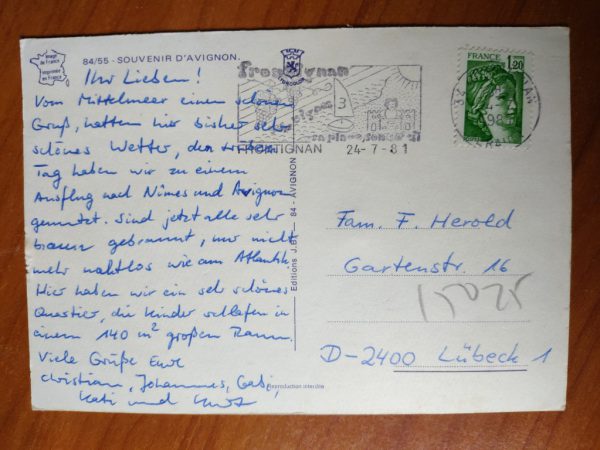 Image
de France
imprimée
en France
84/55 - SOUVENIR D'AVIGNON
Ihr Lieben!
Vom Mittelmeer einen schönen
Gruß, hatten hier bisher sehr
schönes Wetter, den
Tag haben wir zu einem
Ausflug nach Nîmes und Avignon
genutzt. Sind jetzt alle sehr
braun gebrannt, nur nicht
mehr nahtlos wie am Atlantik.
Hier haben wir ein sehr schönes
Quartier, die Kinder schlafen in
einem 140 m² großen Raum.
Viele Grüße Eure
Christian, Johannes, Gabi,
Kati und
Editions J.BY - 84 - AVIGNON
Reproduction interdite
frontignan
sa plage, son
FRONTIGNAN 24-7-81
FRANCE
1,20
34
Fam. F. Herold
Gartenstr. 16
D-2400 Lübeck 1